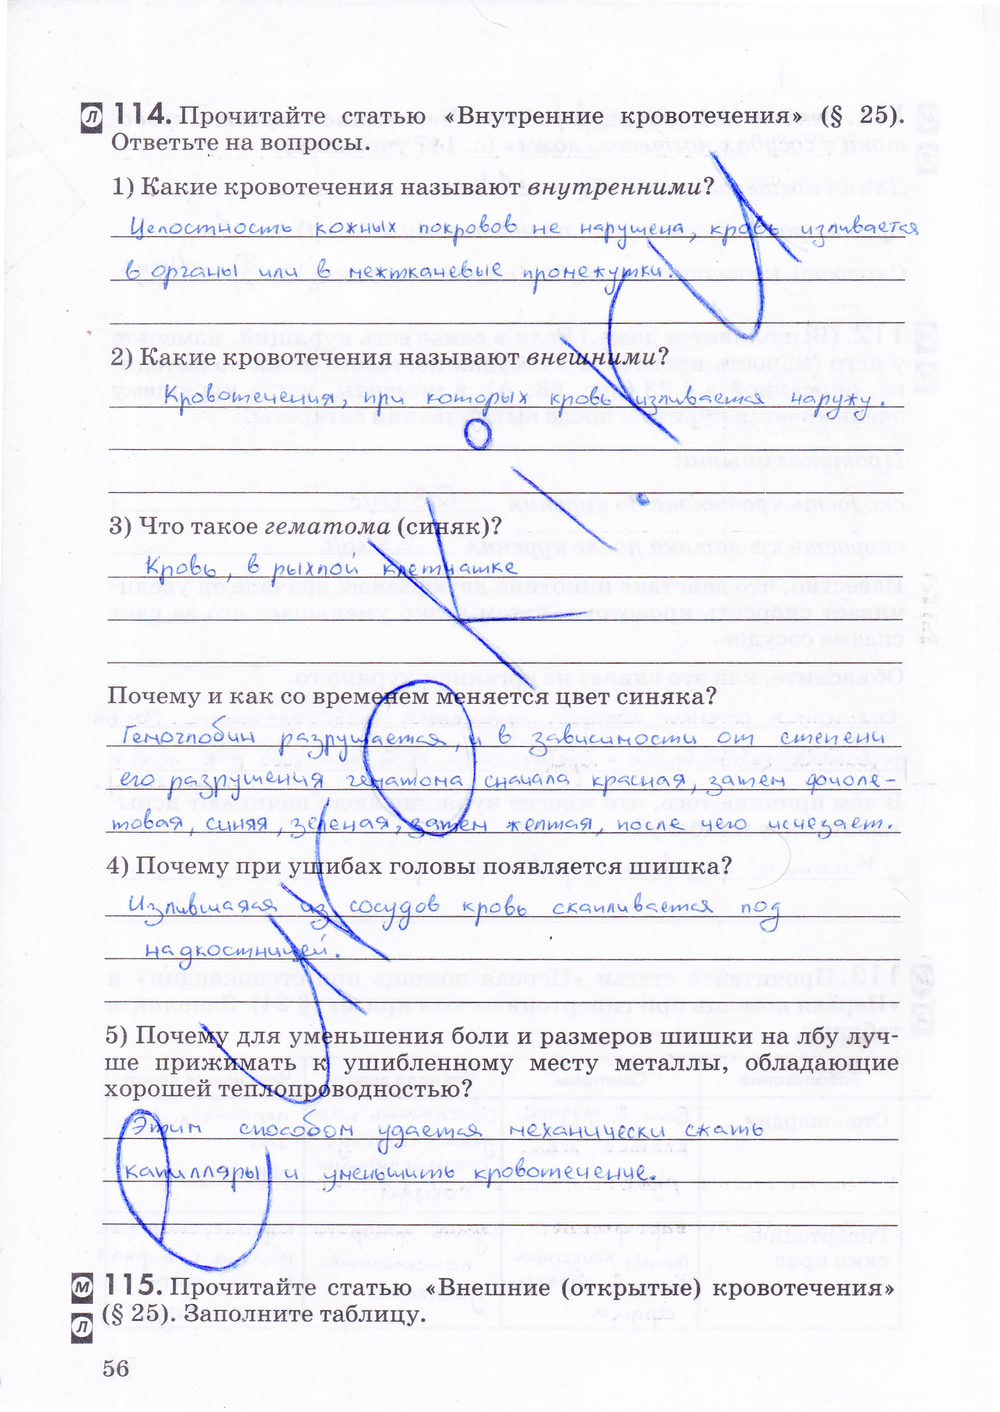 Л 114. Прочитайте статью «Внутренние кровотечения» (§ 25).
Ответьте на вопросы.
1) Какие кровотечения называют внутренними?
Целостность кожных покровов не нарушена, кровь изливается
в органы или в межткачевые промежутки.
2) Какие кровотечения называют внешними?
Кровотечения, при которых кровь изливается наружу.
3) Что такое гематома (синяк)?
Кровь, в рыхлой клетчашке
Почему и как со временем меняется цвет синяка?
Гемоглобин разрушается, и в зависимости от степени
его разрушения гематома сначала красная, затем фиоле-
товая, синяя, зеленая, затем желтая, после чего исчезает.
4) Почему при ушибах головы появляется шишка?
Излившаяся из сосудов кровь скапливается под
надкостницей.
5) Почему для уменьшения боли и размеров шишки на лбу луч-
ше прижимать к ушибленному месту металлы, обладающие
хорошей теплопроводностью?
Этим способом удается механически сжать
капилляры и уменьшить кровотечение.
М Л 115. Прочитайте статью «Внешние (открытые) кровотечения»
(§ 25). Заполните таблицу.
56